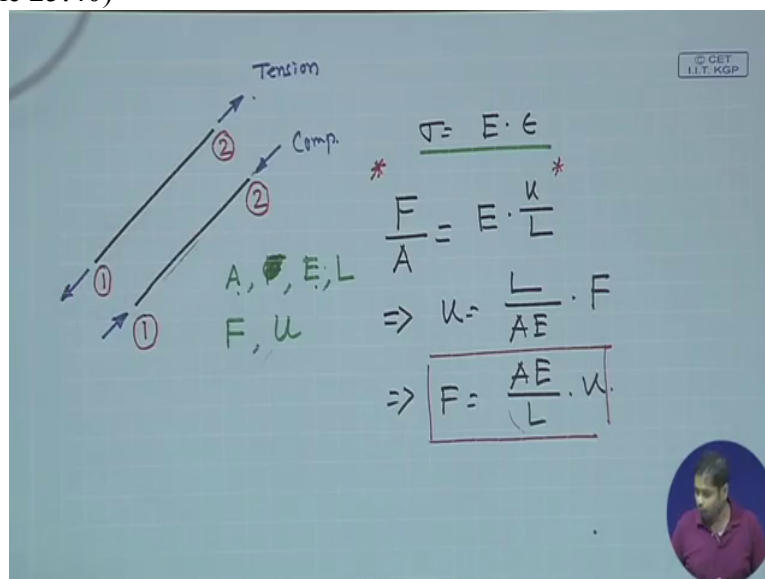 © CET
I.I.T. KGP
Tension
②
Comp.
②
①
①
A, E, L
F, u
σ = E · ϵ
* F/A = E · u/L *
=> u = L/AE · F
=> F = AE/L · u.